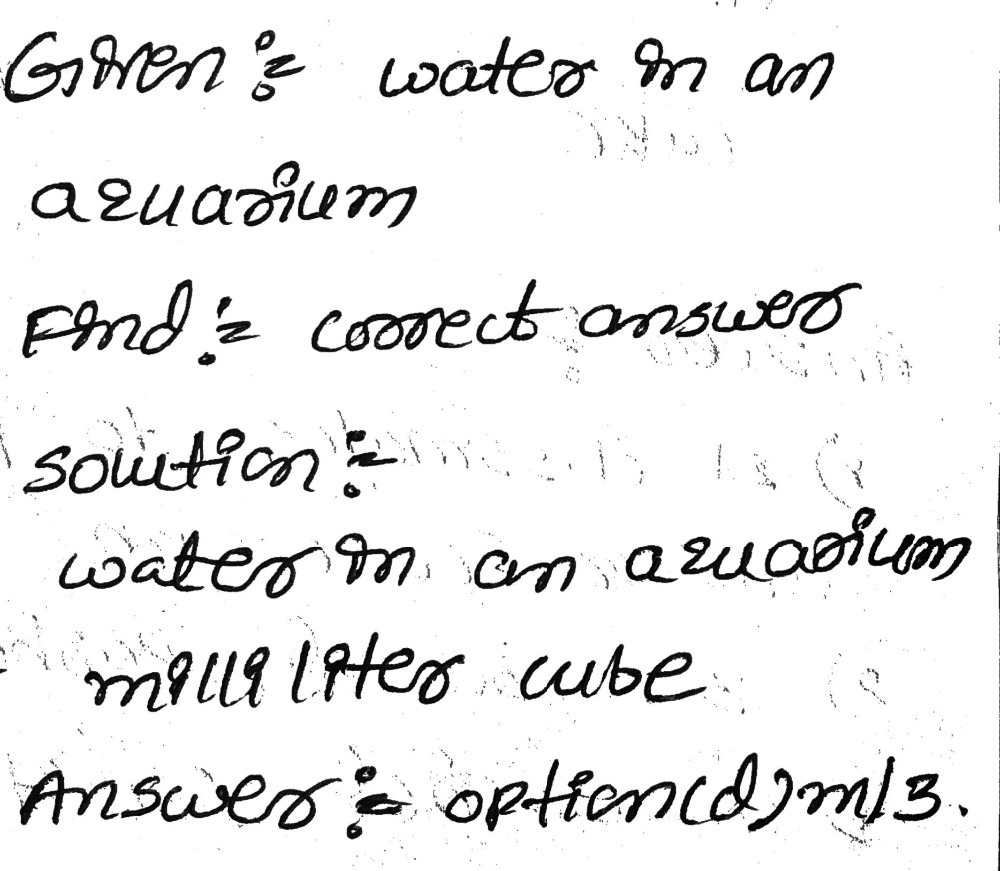 Given :- water in an
aquarium
Find :- correct answer
solution :-
water in an aquarium
milli liter cube
Answer :- option(d) ml3.